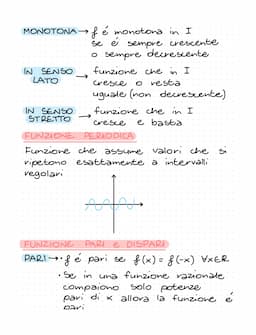 MONOTONA → f é monotona in I
se é sempre crescente
o sempre decrescente
IN SENSO → funzione che in I
LATO cresce o resta
uguale (non decrescente)
IN SENSO → funzione che in I
STRETTO cresce e basta
FUNZIONE PERIODICA
Funzione che assume valori che si
ripetono esattamente a intervalli
regolari
FUNZIONE PARI e DISPARI
PARI → • f é pari se f(x) = f(-x) ∀x∈R
• se in una funzione razionale
compaiono solo potenze
pari di x allora la funzione é
pari